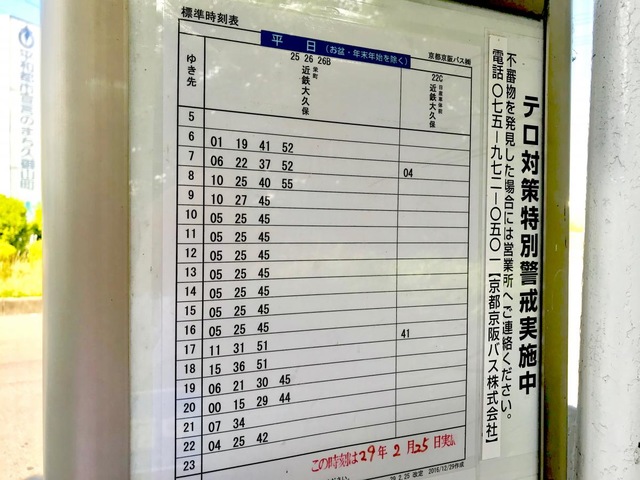 標準時刻表
平 日 (お盆・年末年始を除く)
京都京阪バス㈱
ゆき先
25 26 26B
栄町
近鉄大久保
22C
近鉄大久保
5
6 01 19 41 52
7 06 22 37 52 04
8 10 25 40 55
9 10 27 45
10 05 25 45
11 05 25 45
12 05 25 45
13 05 25 45
14 05 25 45
15 05 25 45
16 05 25 45 41
17 11 31 51
18 15 36 51
19 06 21 30 45
20 00 15 29 44
21 07 34
22 04 25 42
23
この時刻は29年 2月25日実
29.2.25 改定 2016/12/29作成
ください。
テロ対策特別警戒実施中
不審物を発見した場合には営業所へご連絡ください。
電話 〇七五ー九七二ー〇五〇一【京都京阪バス株式会社】
平和都市宣言のまち久御山町